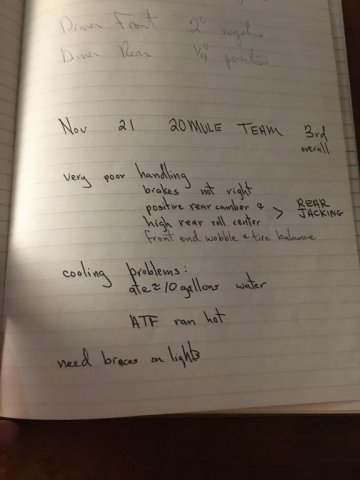 Driver Front 2° negative
Driver Rear 1/4° positive
Nov 21 20 MULE TEAM 3rd
overall
very poor handling
brakes not right
positive rear camber & > REAR
high rear roll center JACKING
front end wobble & tire balance
cooling problems:
ate ≈ 10 gallons water
ATF ran hot
need braces on lights